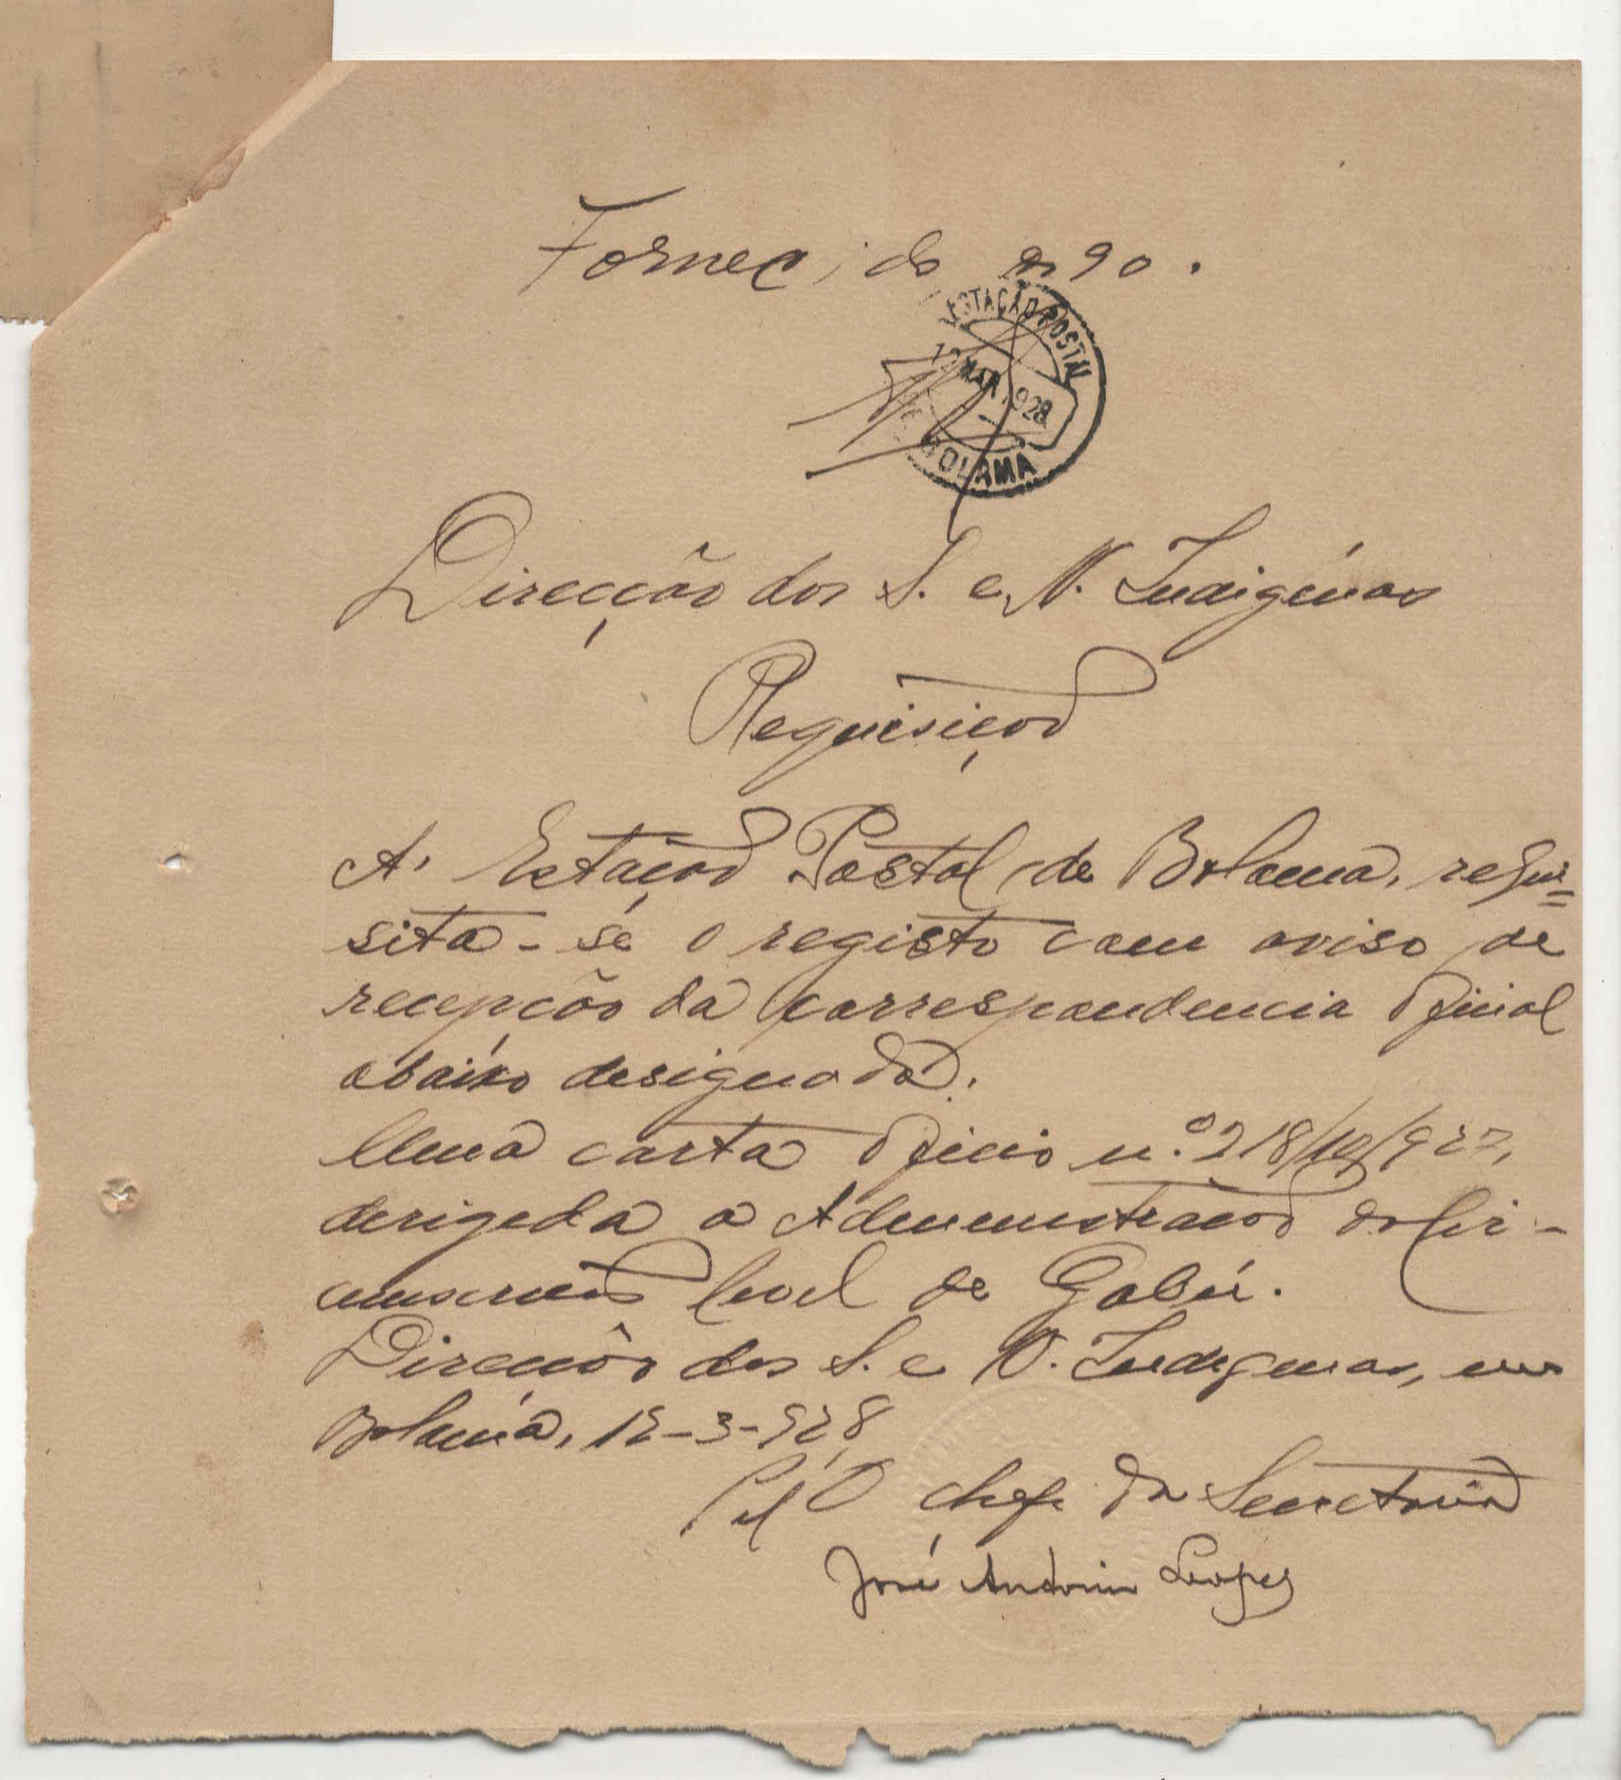 Fornecido 90.
ESTAÇÃO POSTAL
MAR 1928
BOLAMA
Direcção dos S. e N. Indigénas
Requisição
A' Estação Postal de Bolama, requi=
sita-se o registo com aviso de
recepção da correspondencia oficial
abaixo designada.
Uma carta oficio n.º 218/10/927,
derigeda a Administração da Cir-
cunscrição Civel de Gabú.
Direcção dos S. e N. Indigenas, em
Bolama, 12-3-928
Pel'O chefe da Secretaria
José Antonio Lopes